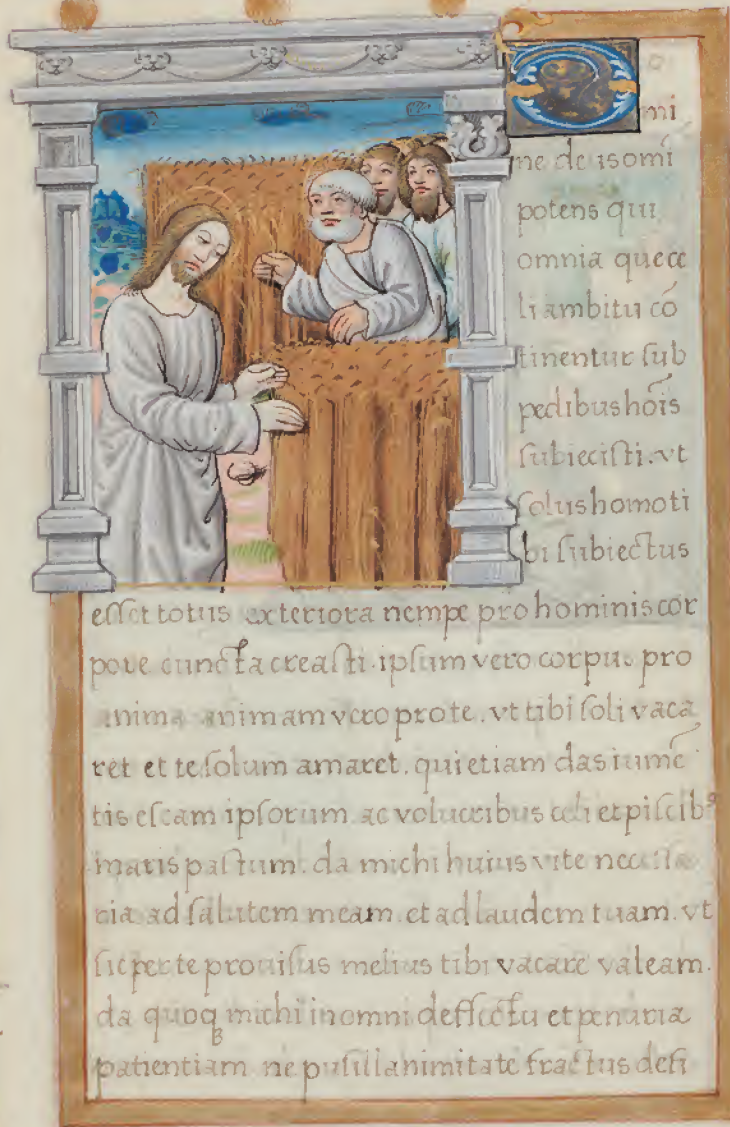 D
o
mi
ne deus omi
potens qui
omnia que ce
li ambitu cō
tinentur sub
pedibus hoīs
subiecisti. vt
solus homo ti
bi subiectus
esset totus exteriora nempe pro hominis cor
pore cuncta creasti. ipsum vero corpus pro
anima animam vero pro te. vt tibi soli vaca
ret et te solum amaret. qui etiam das iumē
tis escam ipsorum ac volucribus celi et piscibꝰ
maris pastum. da michi huius vite necessa
ria ad salutem meam. et ad laudem tuam. vt
sic per te prouisus melius tibi vacare valeam.
da quoqꝫ michi in omni deffectu et penuria
patientiam ne pusillanimitate fractus defi